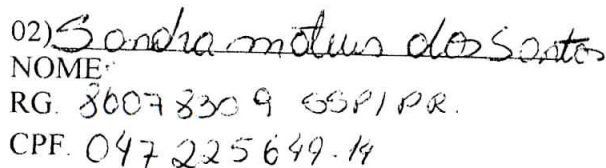 02) Sandra mateus dos Santos
NOME:
RG. 86078309 SSP/PR.
CPF. 047 225649-14